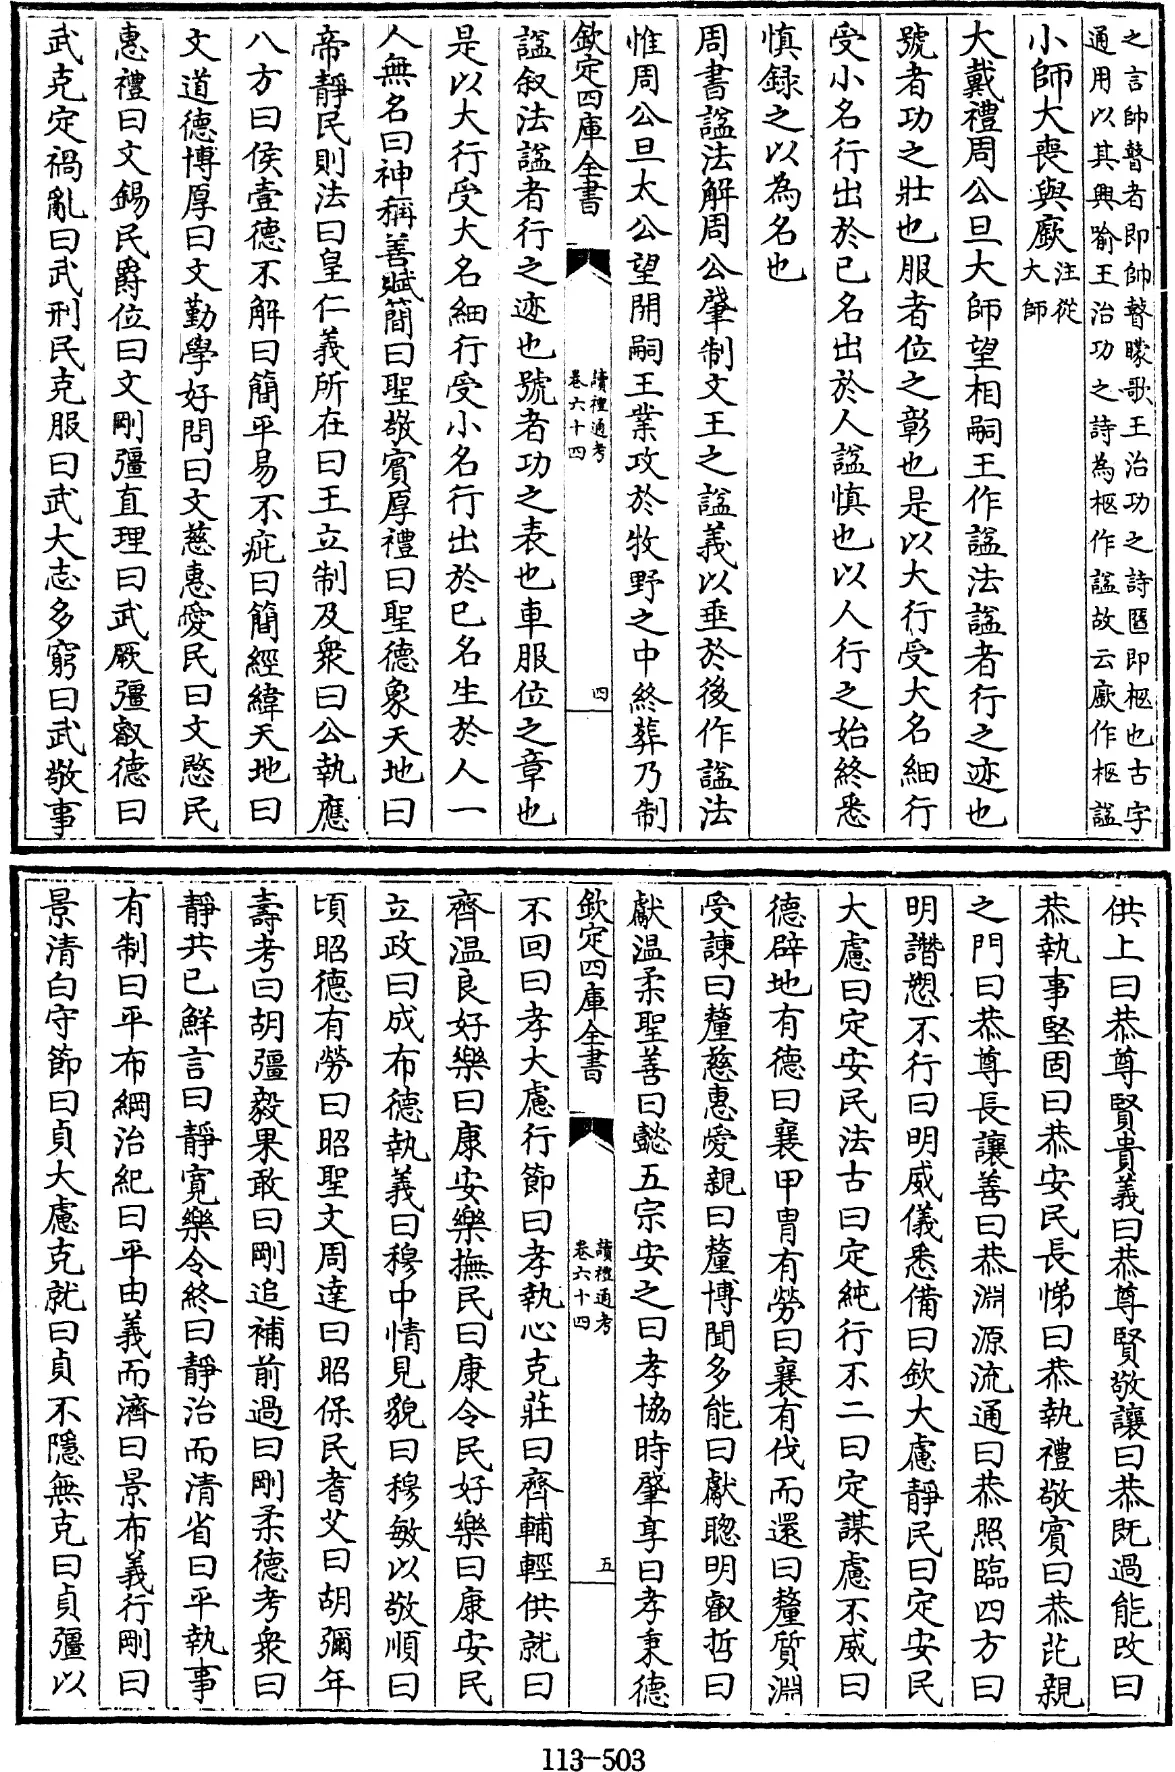 之言帥瞽者即帥瞽矇歌王治功之詩匶即柩也古字
通用以其興喻王治功之詩為柩作諡故云廞作柩諡
小師大喪與廞注從大師
大戴禮周公旦大師望相嗣王作諡法諡者行之迹也
號者功之壯也服者位之彰也是以大行受大名細行
受小名行出於已名出於人諡慎也以人行之始終悉
慎録之以為名也
周書諡法解周公肇制文王之諡義以垂於後作諡法
惟周公旦太公望開嗣王業攻於牧野之中終葬乃制
欽定四庫全書
讀禮通考
卷六十四
四
諡叙法諡者行之迹也號者功之表也車服位之章也
是以大行受大名細行受小名行出於已名生於人一
人無名曰神稱善賦簡曰聖敬賓厚禮曰聖德象天地曰
帝靜民則法曰皇仁義所在曰王立制及衆曰公執應
八方曰侯壹德不解曰簡平易不疵曰簡經緯天地曰
文道德博厚曰文勤學好問曰文慈惠愛民曰文愍民
惠禮曰文錫民爵位曰文剛彊直理曰武厥彊叡德曰
武克定禍亂曰武刑民克服曰武大志多窮曰武敬事
供上曰恭尊賢貴義曰恭尊賢敬讓曰恭既過能改曰
恭執事堅固曰恭安民長悌曰恭執禮敬賓曰恭芘親
之門曰恭尊長讓善曰恭淵源流通曰恭照臨四方曰
明譖愬不行曰明威儀悉備曰欽大慮靜民曰定安民
大慮曰定安民法古曰定純行不二曰定謀慮不威曰
德辟地有德曰襄甲胄有勞曰襄有伐而還曰釐質淵
受諫曰釐慈惠愛親曰釐博聞多能曰獻聰明叡哲曰
獻温柔聖善曰懿五宗安之曰孝協時肇享曰孝秉德
欽定四庫全書
讀禮通考
卷六十四
五
不回曰孝大慮行節曰孝執心克莊曰齊輔輕供就曰
齊温良好樂曰康安樂撫民曰康令民好樂曰康安民
立政曰成布德執義曰穆中情見貌曰穆敏以敬順曰
頃昭德有勞曰昭聖文周達曰昭保民耆艾曰胡彌年
壽考曰胡彊毅果敢曰剛追補前過曰剛柔德考衆曰
靜共已鮮言曰靜寛樂令終曰靜治而清省曰平執事
有制曰平布綱治紀曰平由義而濟曰景布義行剛曰
景清白守節曰貞大慮克就曰貞不隱無克曰貞彊以
113-503